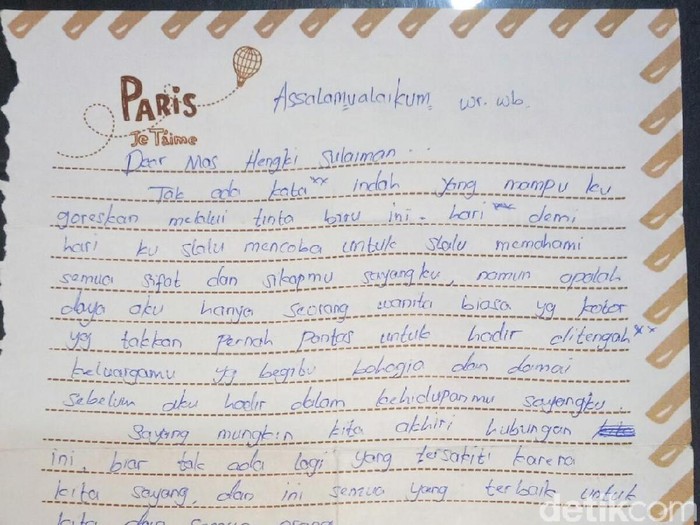 PARIS
Je T'aime
Assalamualaikum wr. wb.
Dear Mas Hengki Sulaiman...
Tak ada kata" indah yang mampu ku
goreskan melalui tinta biru ini. hari demi
hari ku slalu mencoba untuk slalu memahami
semua sifat dan sikapmu sayangku, namun apalah
daya aku hanya seorang wanita biasa yg kotor
yg takkan pernah pantas untuk hadir ditengah"
keluargamu yg begitu bahagia dan damai
sebelum aku hadir dalam kehidupanmu sayangku.
Sayang mungkin kita akhiri hubungan
ini, biar tak ada lagi yang tersakiti karena
kita sayang, dan ini semua yang terbaik untuk
kita dan semua orang
detikcom